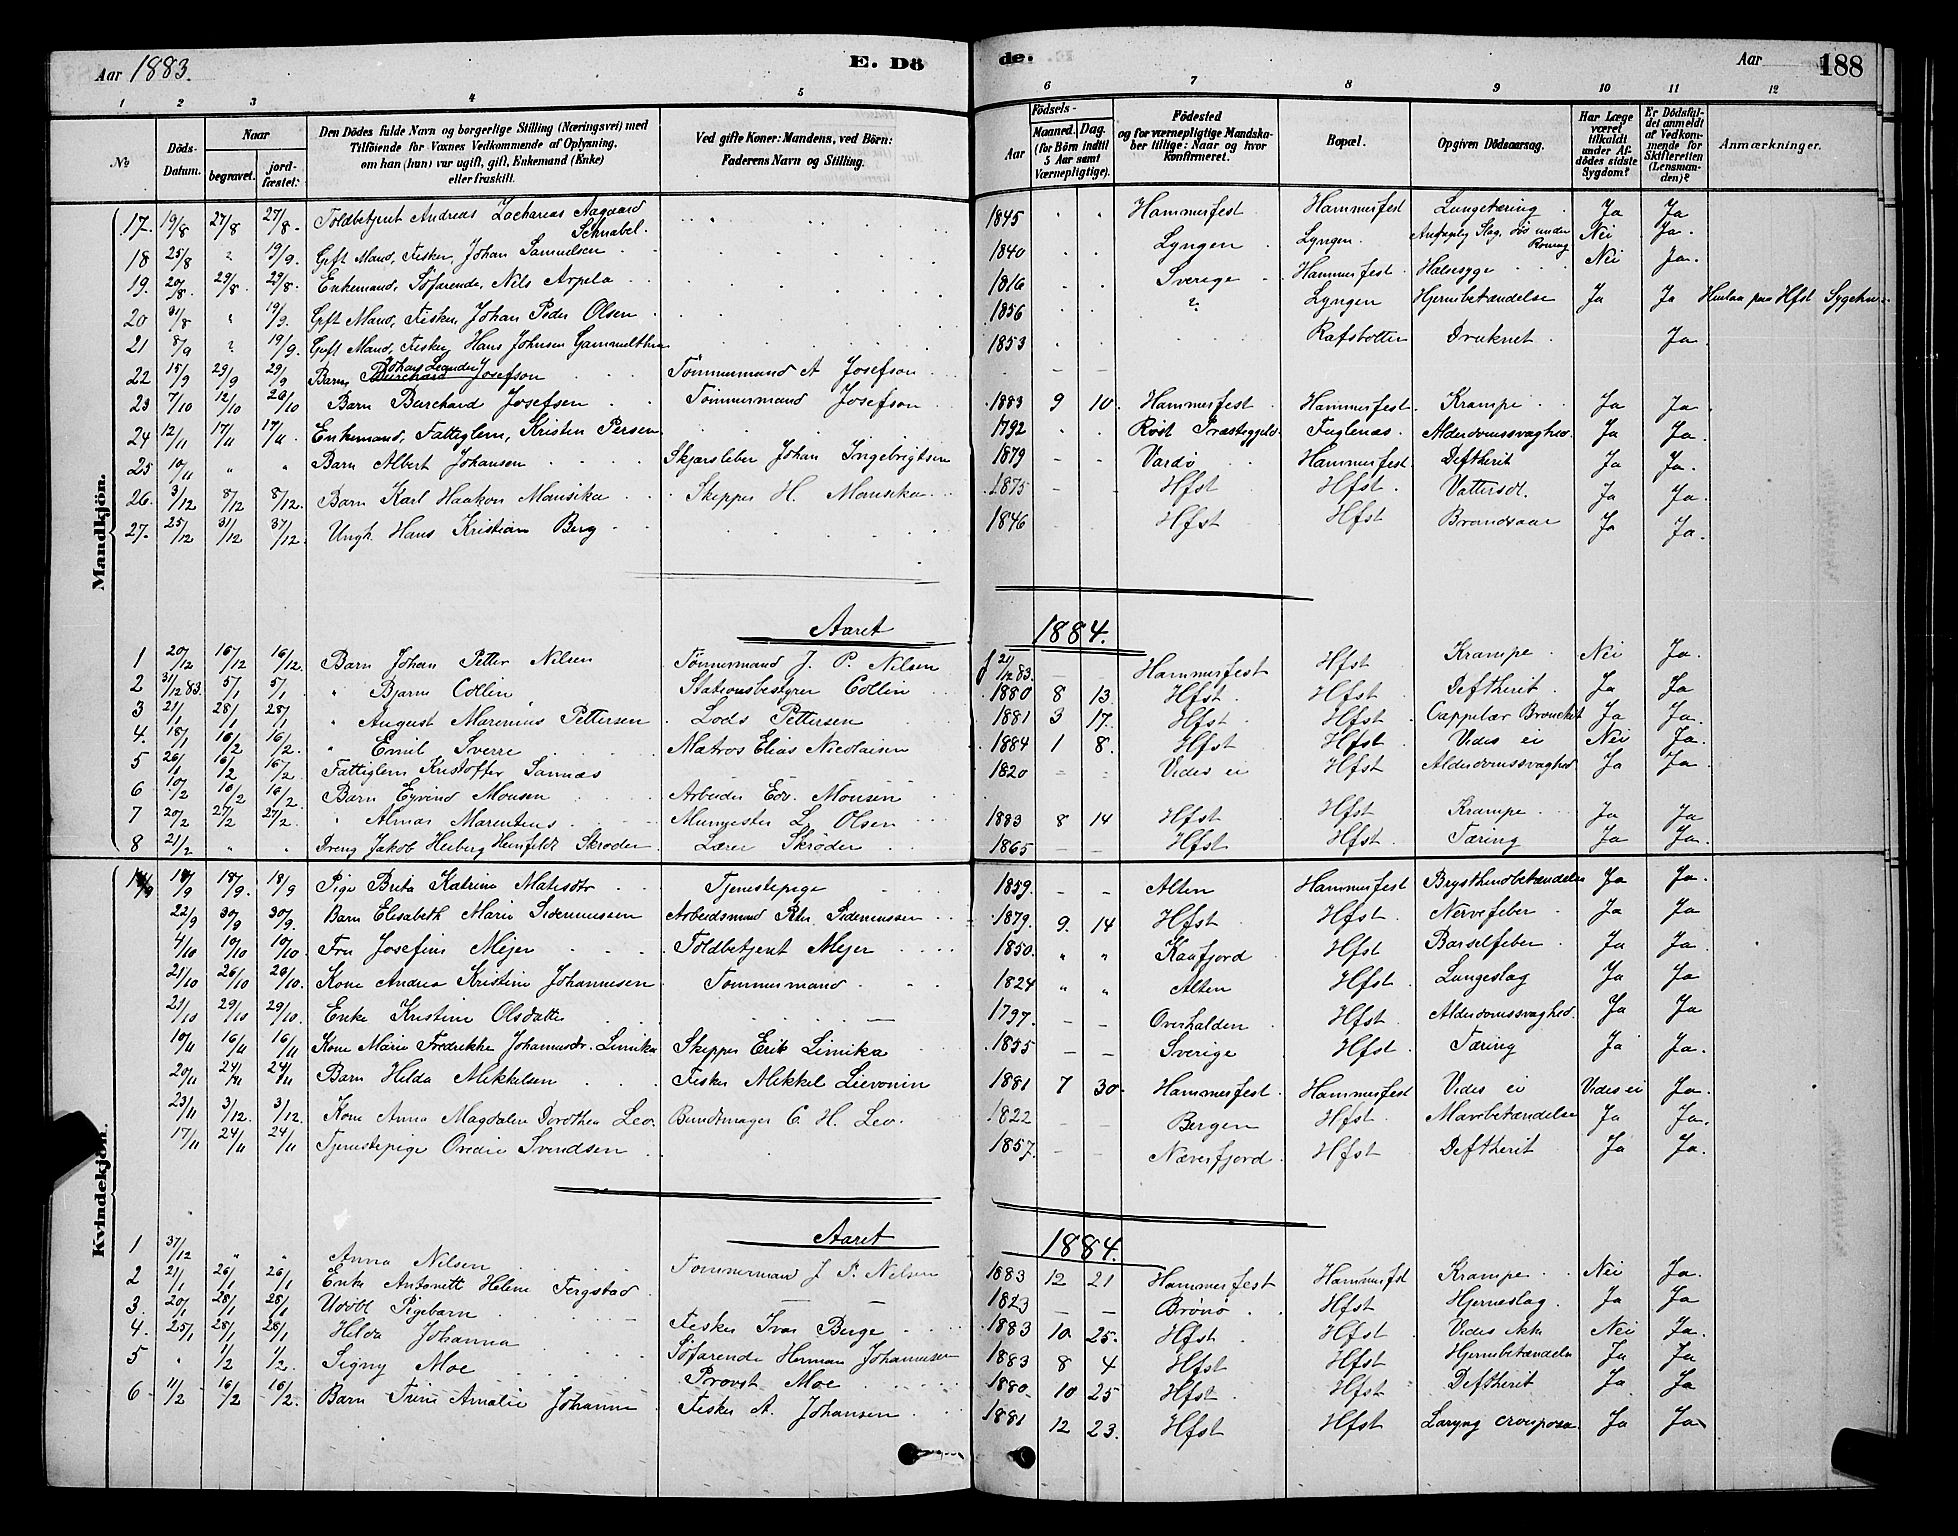 Aar 1883.
E. Dö
de.
Aar
188
1 2 3 4 5 6 7 8 9 10 11 12
№
Döds-Datum.
Naar
begravet.
jordfæstet:
Den Dödes fulde Navn og borgerlige Stilling (Næringsvei) med
Tilföiende for Voxnes Vedkommende af Oplysning,
om han (hun) var ugift, gift, Enkemand (Enke)
eller fraskilt.
Ved gifte Koner: Mandens, ved Börn:
Faderens Navn og Stilling.
Födsels-
Aar
Maaned. Dag.
(for Börn indtil
5 Aar samt
Værnepligtige).
Födested
og for værnepligtige Mandska-
ber tillige: Naar og hvor
konfirmeret.
Bopæl.
Opgiven Dödsaarsag.
Har Læge
været
tilkaldt
under Af-
dödes sidste
Sygdom?
Er Dödsfal-
det anmeldt
af Vedkom-
mende for
Skifteretten
(Lensman-
den)?
Anmærkninger.
Mandkjön.
17. 19/8 27/8 27/8. Toldbetjent Andreas Zacharias Aagaard Schnabel. 1845 Hammerfest Hammerfest Lungetæring Ja Ja
18 25/8 " 19/9. Gift Mand, Fisker, Johan Samuelsen 1840 Lyngen Lyngen. Slag, død under Roning Nei Ja.
19. 20/8 29/8 29/8. Enkemand, Söfarende, Nils Arpela 1816 Sverige Hammerfest Halssyge Nei Ja.
20 31/8 " 19/9. Gift Mand, Fisker, Johan Peder Olsen 1856 ? Lyngen Hjernebetændelse Ja Ja paa Hfst
21 8/9 " 19/9. Gift Mand, Fisker, Hans Johnsen 1853 Rafsbotten Druknet Ja.
22 15/9 29/9 29/9 Barn Johan Leander Josefson Tömmermand A Josefson
23 7/10 12/10 26/10 Barn Burchard Josefsen Tömmermand Josefson 1883 9 10. Hammerfest Hammerfest. Krampe Ja Ja
24 12/11 17/11 17/11. Enkemand, Fattiglem, Kristen Persen 1792 Fuglenæs. Alderdomssvaghed. Ja Ja.
25 10/11 " " Barn Albert Johansen Johan Ingebrigtsen 1879 Vardö Hammerfest. Deftherit Ja Ja.
26. 3/12 8/12 8/12. Barn Karl Haakon Mansika Skipper H. Mansika 1875 Hfst Hfst. Vattersot. Ja Ja.
27. 25/12 31/12 31/12. Ungk. Hans Kristian Berg 1846 Hfst Hfst Brandsaar Ja Ja.
Aaret 1884.
1 20/12 16/12 16/12. Barn Johan Petter Nilsen Tömmermand J. P. Nilsen f 21/12 83. Hammerfest Hfst Krampe Nei Ja.
2 31/12 83. 5/1 5/1. " Bjarne Collin Stationsbestyrer Collin 1880 8 13. Hfst. Hfst. Deftherit. Ja Ja
3 21/1 28/1 28/1 " August Marenius Pettersen Lods Pettersen 1881 3 17. Hfst. Hfst. Cappilær Ja Ja.
4. 18/1 16/2 16/2. " Emil Sverre Matros Elias Nicolaisen 1884 1 8. Hfst Hfst. Vides ei Nei Ja.
5 26/1 16/2 16/2 Fattiglem Kristoffer Sannæs 1820 Vides ei Hfst Alderdomssvaghed Ja Ja.
6 10/2 16/2 16/2. Barn Eyvind Monsen Arbeider Edv. Monsen
7 20/2 27/2 27/2. " Almar Marentius L. Olsen 1883 8 14 Hfst Hfst Krampe Ja Ja
8 21/2 " " Dreng Jakob Heiberg Skröder Lærer Skröder 1865 Hfst Hfst. Tæring Ja Ja.
Kvindekjön.
14/9 18/9. 18/9 Pige Brita Katrina Matisdtr Tjenestepige 1859. Alten Hammerfest Brysthindbetændelse Ja Ja.
22/9 30/9 30/9. Barn Elisabeth Marie Sidenussen Arbeidsmand Ptr. Sidenussen 1879. 9. 14 Hfst. Hfst. Nervefeber Ja Ja
4/10 10/10 10/10. Fru Josefine Mejer Toldbetjent Mejer 1850. " " Kaafjord Hfst. Barselfeber Ja Ja.
21/10 26/10 26/10. Kone Andrea Kristine Johannesen Tömmermand 1824 " " Alten Hfst. Lungeslag Ja Ja
21/10 29/10 29/10. Enke Kristine Olsdatter 1797. Overhalden Hfst. Alderdomssvaghed. Ja Ja
10/11 16/11 16/11 Kone Marie Fredrikke Johannesdr. Linnika Skipper Erik Linnika 1855 Sverige Hfst. Tæring Ja Ja.
20/11 24/11 24/11 Barn Hilda Mikkelsen Fisker Mikkel Lievonin 1881 7 30. Hammerfest. Hammerfest Vides ei Vides ei Ja.
23/11 3/12. 3/12. Kone Anna Magdalene Dorothea Lev. Bundtmager C. H. Lev. 1822 Bergen Hfst. Mavebetændelse Ja Ja.
17/11 24/11 24/11 Tjenestepige Ovedie Svendsen 1857. Næverfjord Hfst Deftherit Ja Ja.
Aaret 1884.
1 31/12 " " Anna Nilsen Tömmermand J. P. Nilsen 1883 12 21 Hammerfest Hammerfst Krampe Nei Ja.
2 21/1 26/1 26/1 Enke Antonette Helene Fergstad 1823 Brönö Hfst Hjerneslag. Ja Ja
3. 20/1 28/1 28/1 Udöbt Pigebarn Fisker Ivar Berge 1883 10 25. Hfst Hfst. Vides ikke Nei Ja.
4. 25/1 28/1 28/1 Hilda Johanna Söfarende Herman Johannesen 1883 8 4 Hfst Hfst. Hjernebetændelse Ja Ja
5 " 1/2 1/2. Signy Moe Provst Moe 1880. 10 25 Hfst. Hfst. Deftherit Ja. Ja
6 11/2 16/2 16/2. Barn Trine Amalie Johanne Fisker A. Johansen 1881 12 23. Hfst Hfst Laryng crouposa Ja Ja